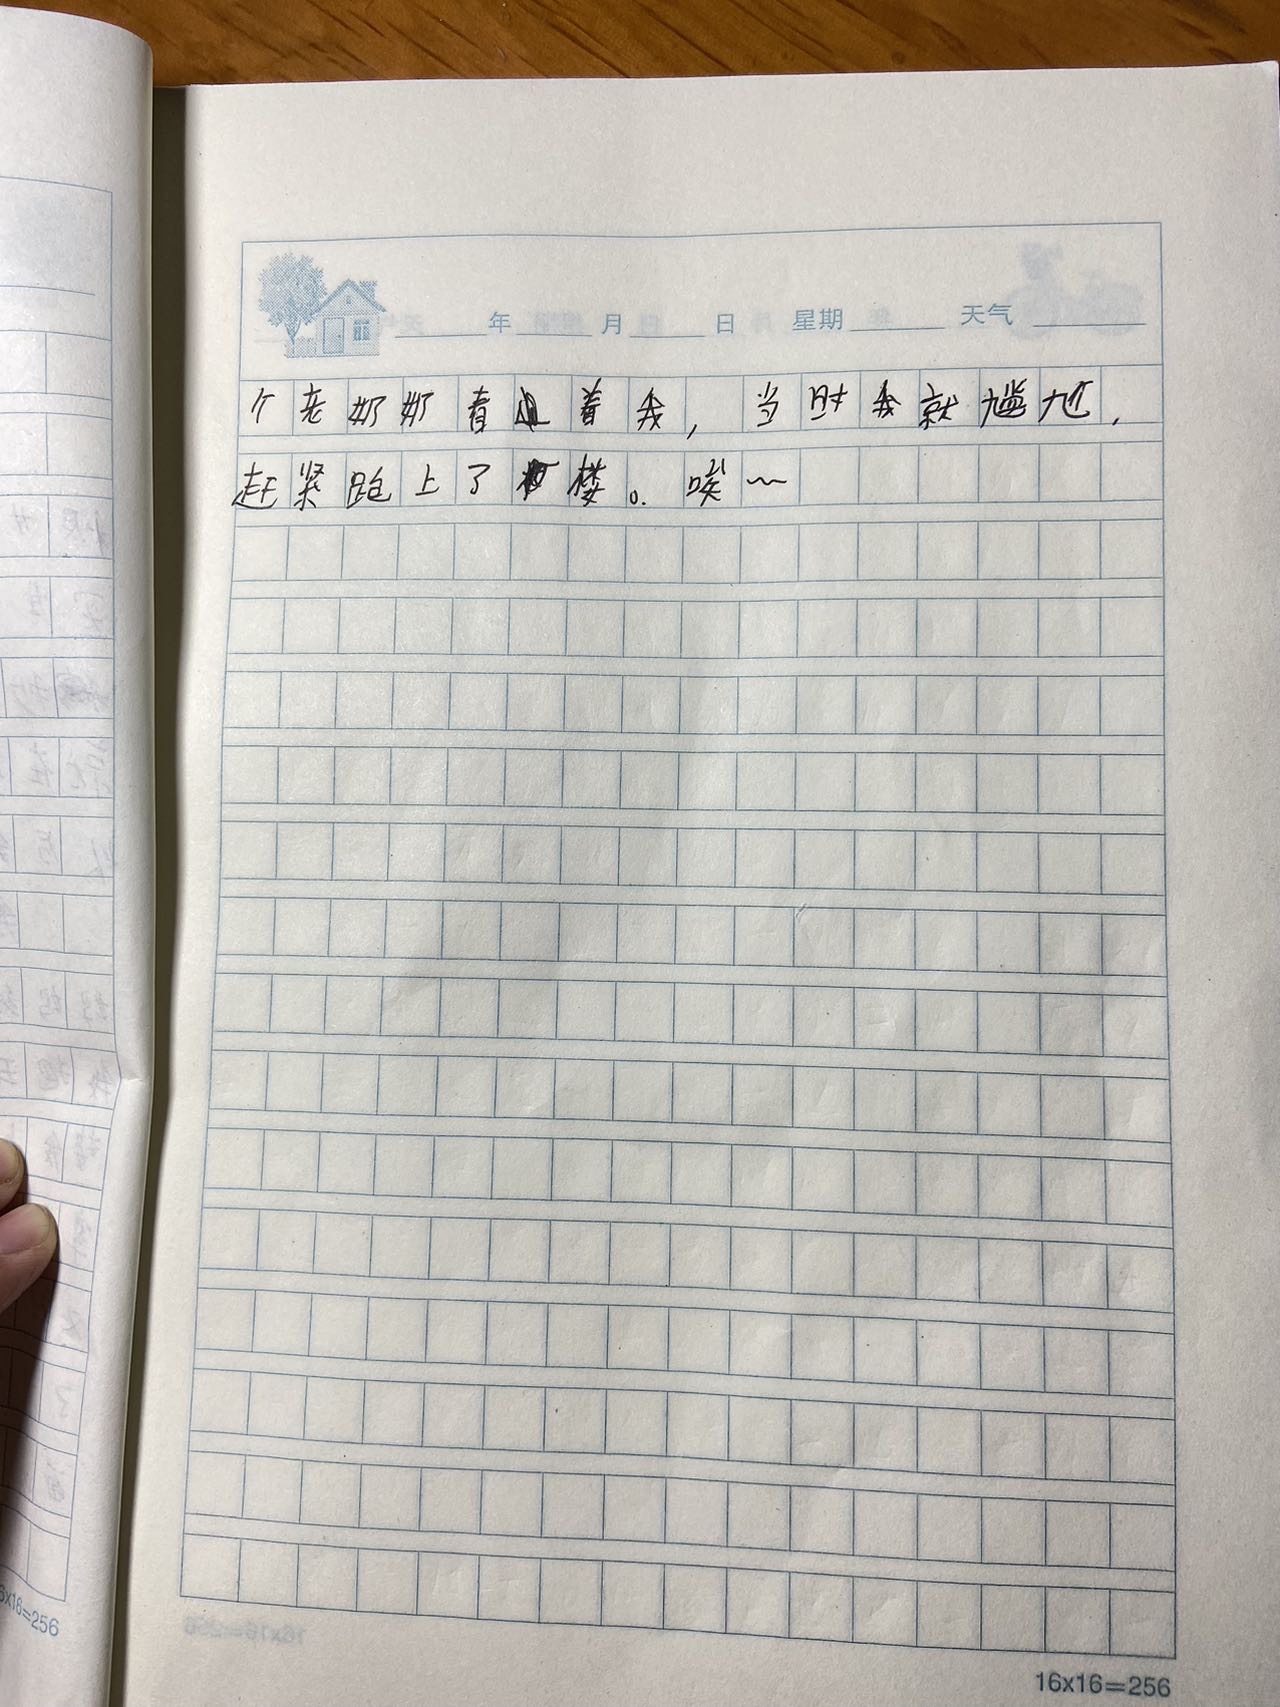 年 月 日 星期 天气
个老奶奶看着我,当时我就尴尬,
赶紧跑上了楼。唉~
16x16=256
6x16=256